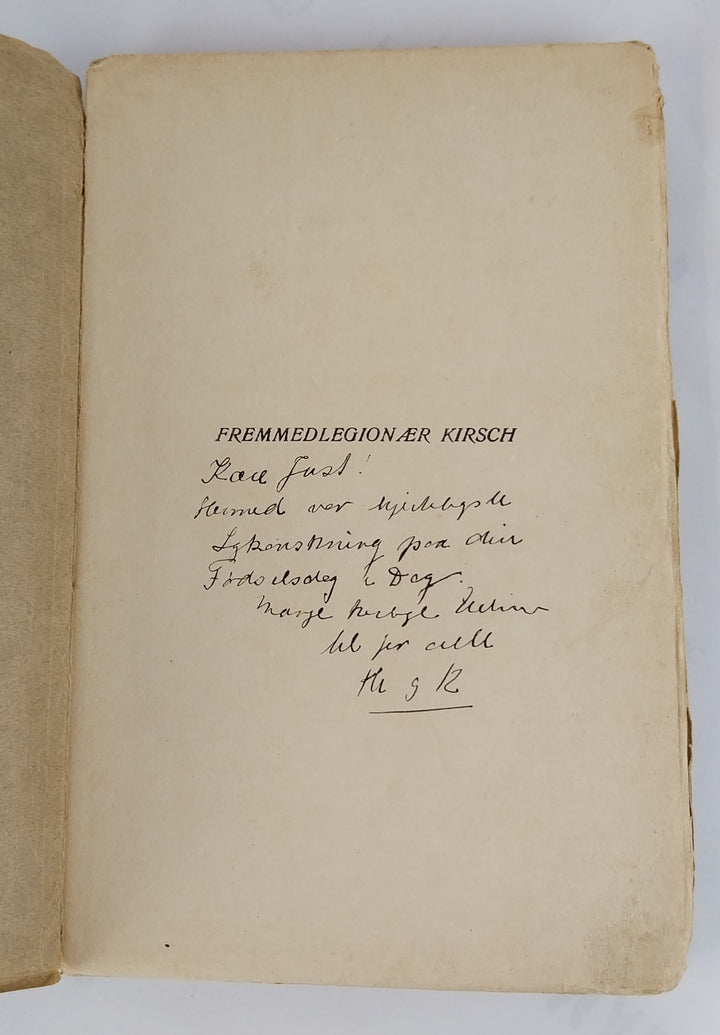 FREMMEDLEGIONÆR KIRSCH
Kære Just!
Hermed vor hjerteligste
Lykønskning paa din
Fødselsdag i Dag.
Mange kærlige Hilsner
til jer alle